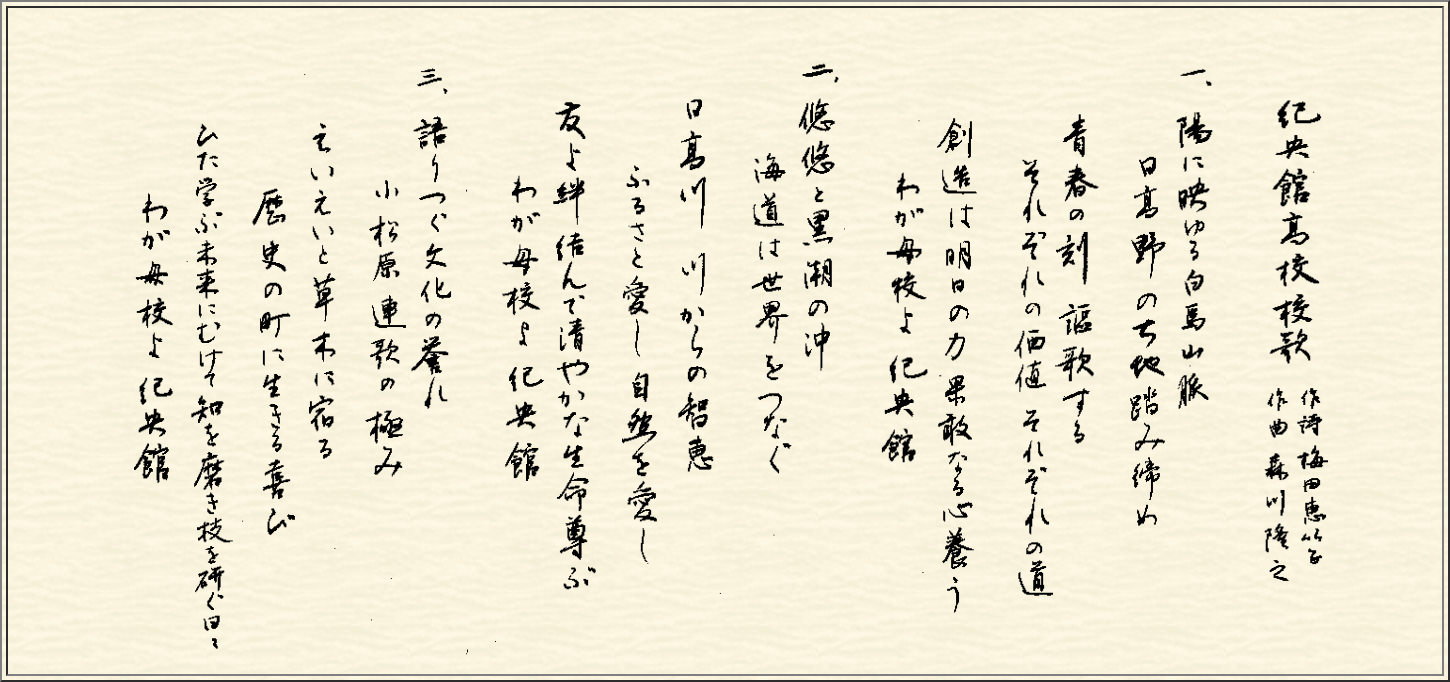 紀央館高校校歌
作詩 梅田恵以子
作曲 森川隆之
一、陽に映ゆる白馬山脈
日高野の大地踏み締め
青春の刻 謳歌する
それぞれの価値 それぞれの道
創造は明日の力 果敢なる心養う
わが母校よ 紀央館
二、悠悠と黒潮の沖
海道は世界をつなぐ
日高川 川からの智恵
ふるさと愛し 自然を愛し
友よ絆 結んで清やかな生命尊ぶ
わが母校よ 紀央館
三、語りつぐ文化の誉れ
小松原 連歌の極み
えいえいと草木に宿る
歴史の町に生きる喜び
ひた学ぶ未来にむけて 知を磨き技を研ぐ日々
わが母校よ 紀央館